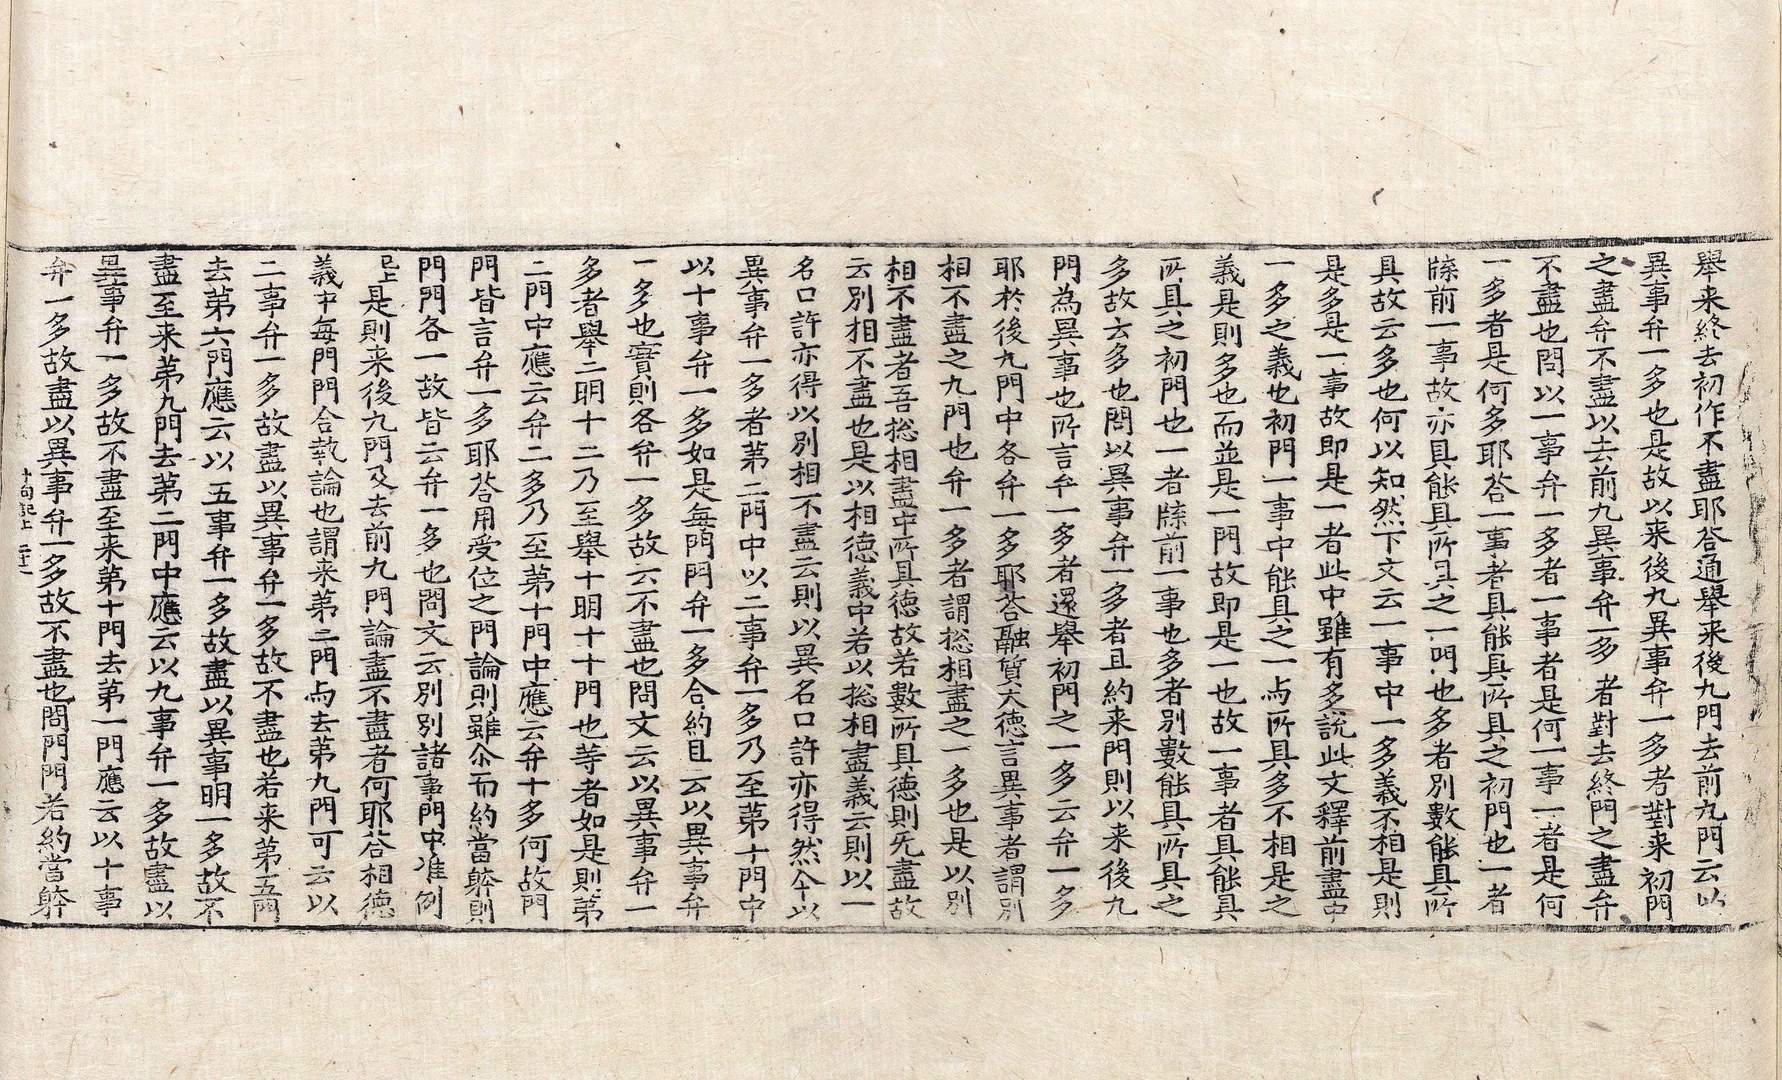 舉来終去初作不盡耶荅通舉来後九門去前九門云以
異事弁一多也是故以来後九異事弁一多者對来初門
之盡弁不盡以去前九異事弁一多者對去終門之盡弁
不盡也問以一事弁一多者一事者是何一事一者是何
一多者是何多耶荅一事者具能具所具之初門也一者
牒前一事故亦具能具所具之一門也多者別數能具所
具故云多也何以知然下文云一事中一多義不相是則
是多是一事故即是一者此中雖有多說此文釋前盡中
一多之義也初門一事中能具之一与所具多不相是之
義是則多也而並是一門故即是一也故一事者具能具
所具之初門也一者牒前一事也多者別數能具所具之
多故云多也問以異事弁一多者且約来門則以来後九
門為異事也所言弁一多者還舉初門之一多云弁一多
耶於後九門中各弁一多耶荅融質大德言異事者謂別
相不盡之九門也弁一多者謂捴相盡之一多也是以別
相不盡者吾捴相盡中所具德故若數所具德則无盡故
云別相不盡也是以相德義中若以捴相盡義云則以一
名口許亦得以別相不盡云則以異名口許亦得然今以
異事弁一多者第二門中以二事弁一多乃至第十門中
以十事弁一多如是每門門弁一多合約且云以異事弁
一多也實則各弁一多故云不盡也問文云以異事弁一
多者舉二明十二乃至舉十明十十門也等者如是則第
二門中應云弁二多乃至第十門中應云弁十多何故門
門皆言弁一多耶荅用受位之門論則雖尒而約當躰則
門門各一故皆云弁一多也問文云別別諸事門中准例
已上是則来後九門及去前九門論盡不盡者何耶荅相德
義中每門門合執論也謂来第二門与去第九門可云以
二事弁一多故盡以異事弁一多故不盡也若来第五門
去第六門應云以五事弁一多故盡以異事明一多故不
盡至来第九門去第二門中應云以九事弁一多故盡以
異事弁一多故不盡至来第十門去第一門應云以十事
弁一多故盡以異事弁一多故不盡也問門門若約當躰